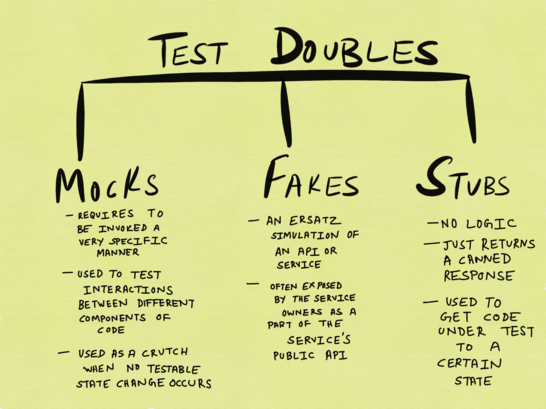 TEST DOUBLES
MOCKS
– REQUIRES TO
BE INVOKED A
VERY SPECIFIC
MANNER
– USED TO TEST
INTERACTIONS
BETWEEN DIFFERENT
COMPONENTS OF
CODE
– USED AS A CRUTCH
WHEN NO TESTABLE
STATE CHANGE OCCURS
FAKES
– AN ERSATZ
SIMULATION OF
AN API OR
SERVICE
– OFTEN EXPOSED
BY THE SERVICE
OWNERS AS A
PART OF THE
SERVICE'S
PUBLIC API
STUBS
– NO LOGIC
– JUST RETURNS
A CANNED
RESPONSE
– USED TO
GET CODE
UNDER TEST
TO A
CERTAIN
STATE